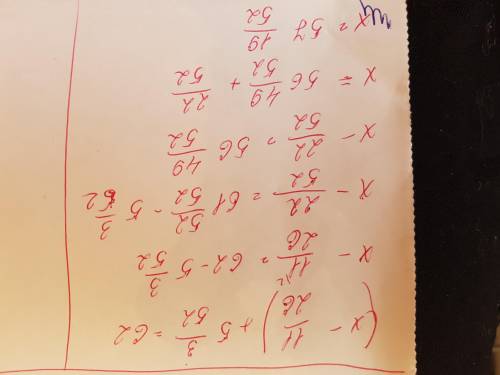 (x - 11/26) + 5 3/52 = 62
x - 11/26 = 62 - 5 3/52
x - 22/52 = 61 52/52 - 5 3/52
x - 22/52 = 56 49/52
x = 56 49/52 + 22/52
x = 57 19/52